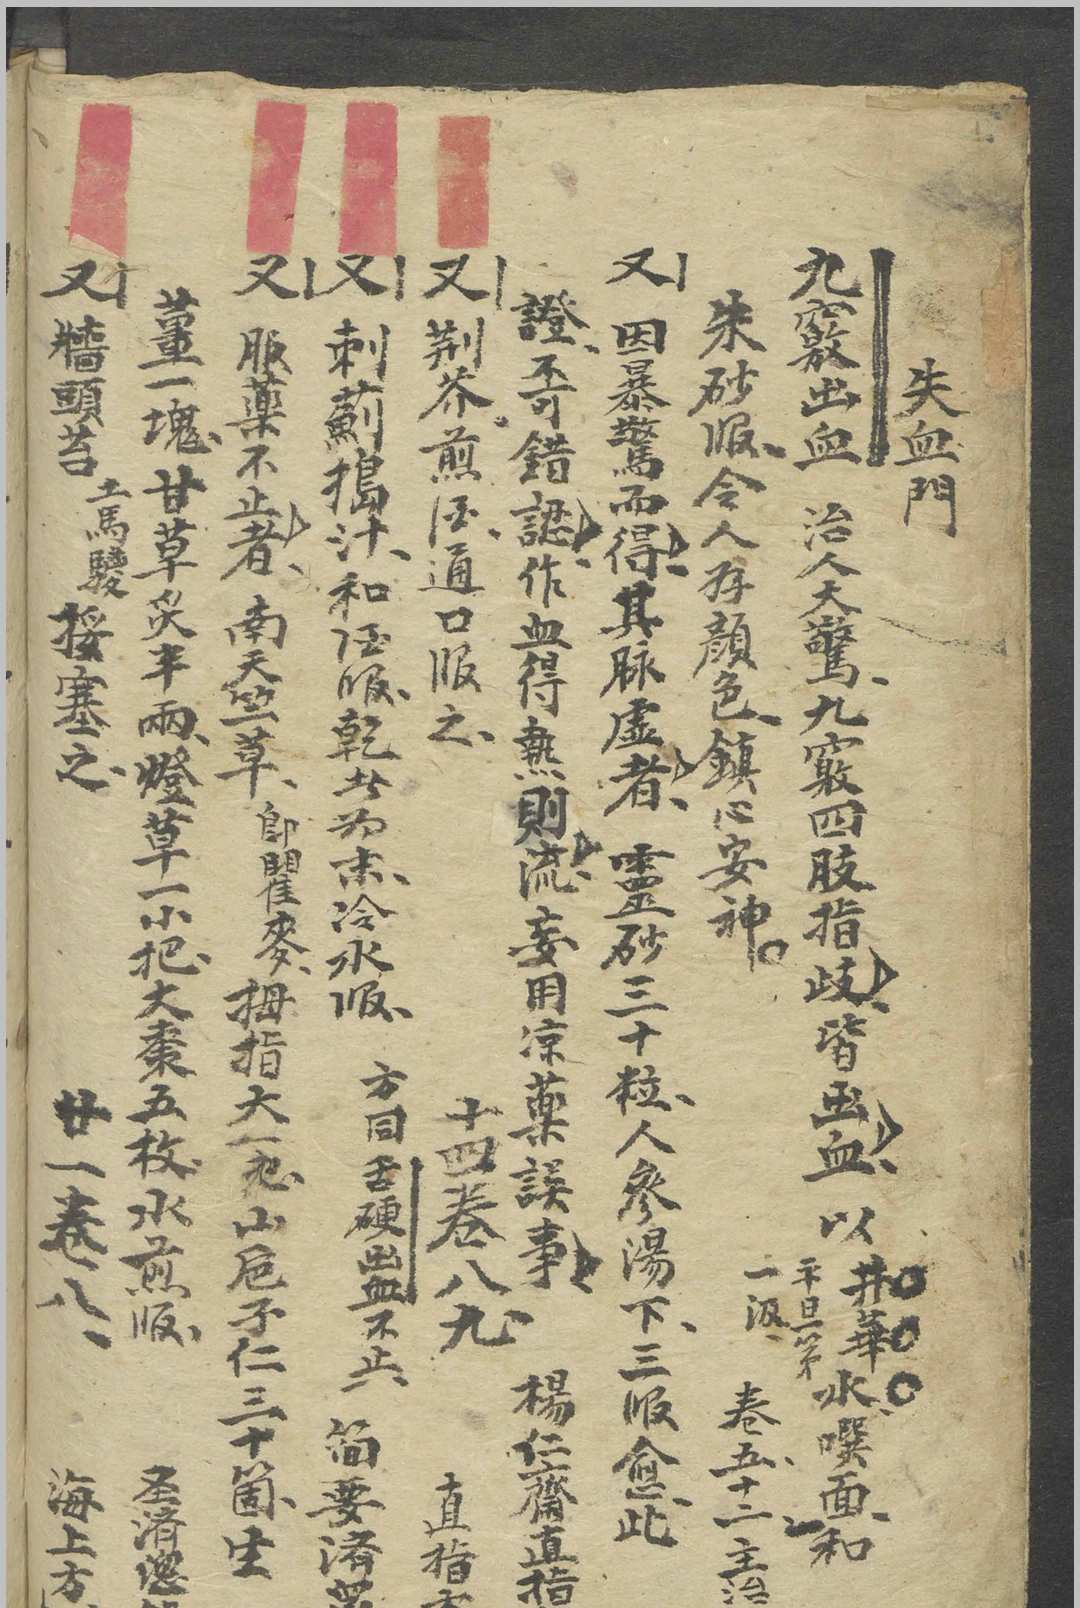 失血門
九竅出血 治人大驚、九竅四肢指歧、皆出血、以井華水平旦第一汲、噀面、和
朱砂服、令人存顔色、鎮心安神。 卷五十二、主治
又 因暴驚而得、其脉虛者、靈砂三十粒、人參湯下、三服愈、此
證、不可錯認作血得熱則流、妄用凉藥誤事、 楊仁齋直指
又 荆芥煎酒、通口服之、 十四卷八九、 直指方
又 刺薊搗汁、和酒服、乾者为末、冷水服、 方同舌硬出血不止、 简要済
又 服藥不止者、南天竺草、即瞿麥、拇指大一把、山巵子仁三十箇、生
薑一塊、甘草炙半兩、燈草一小把、大棗五枚、水煎服、 圣済
又 牆頭苔土馬騣挼塞之、 廿一卷八、 海上方、